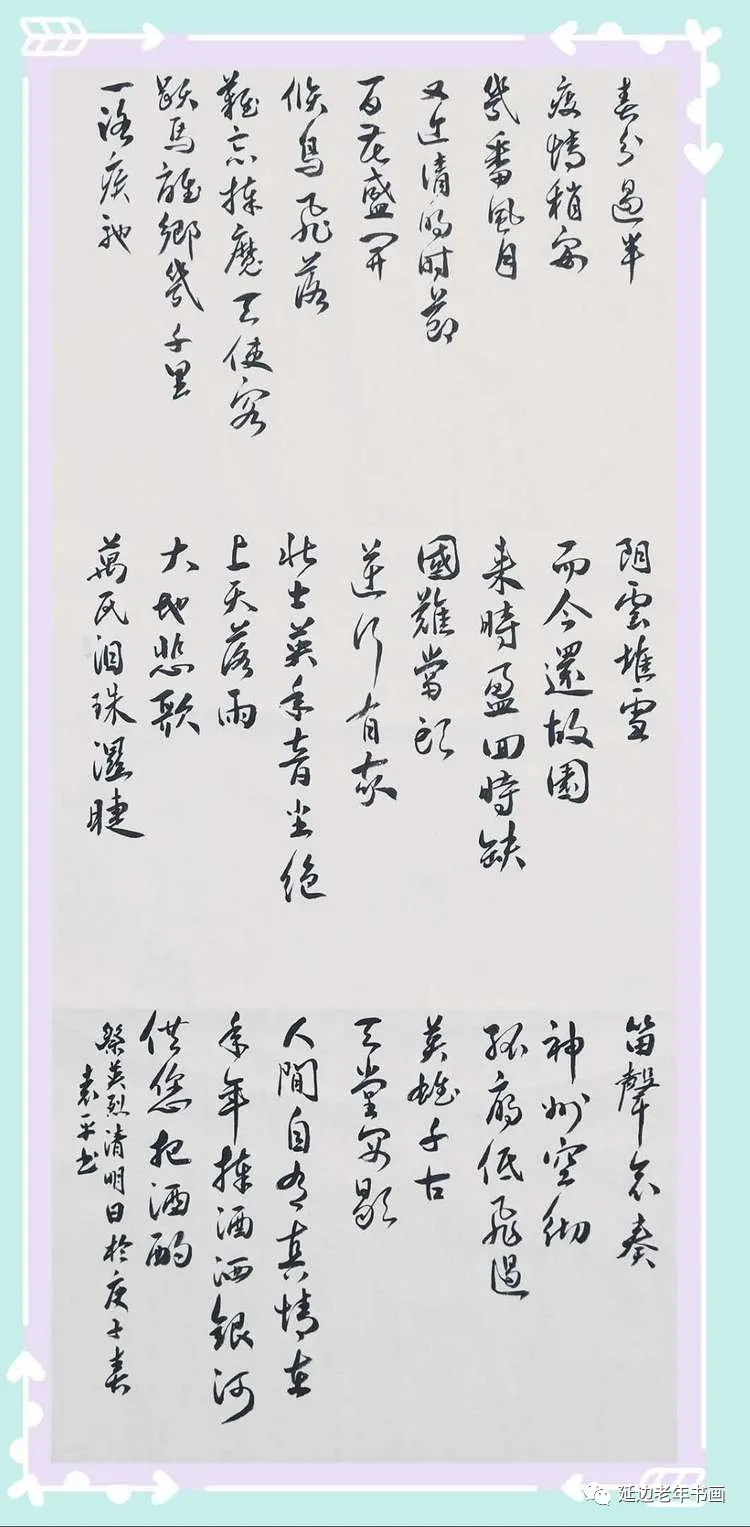 春分過半
疫情稍安
幾番風月
又近清明时節
百花盛開
候鳥飛落
難忘揀魔天使客
跃馬離鄉幾千里
一路疾馳
阴雲堆雪
而今還故園
来時盈回時缺
國難當頭
逆行有我
壮士英年音尘绝
上天落雨
大地悲歌
萬民泪珠濕睫
笛聲哀奏
神州空彻
孤雁低飛過
英雄千古
天堂安歇
人間自有真情在
来年揀酒洒銀河
供您把酒酌
祭英烈清明日於庚子春
袁平书
延边老年书画